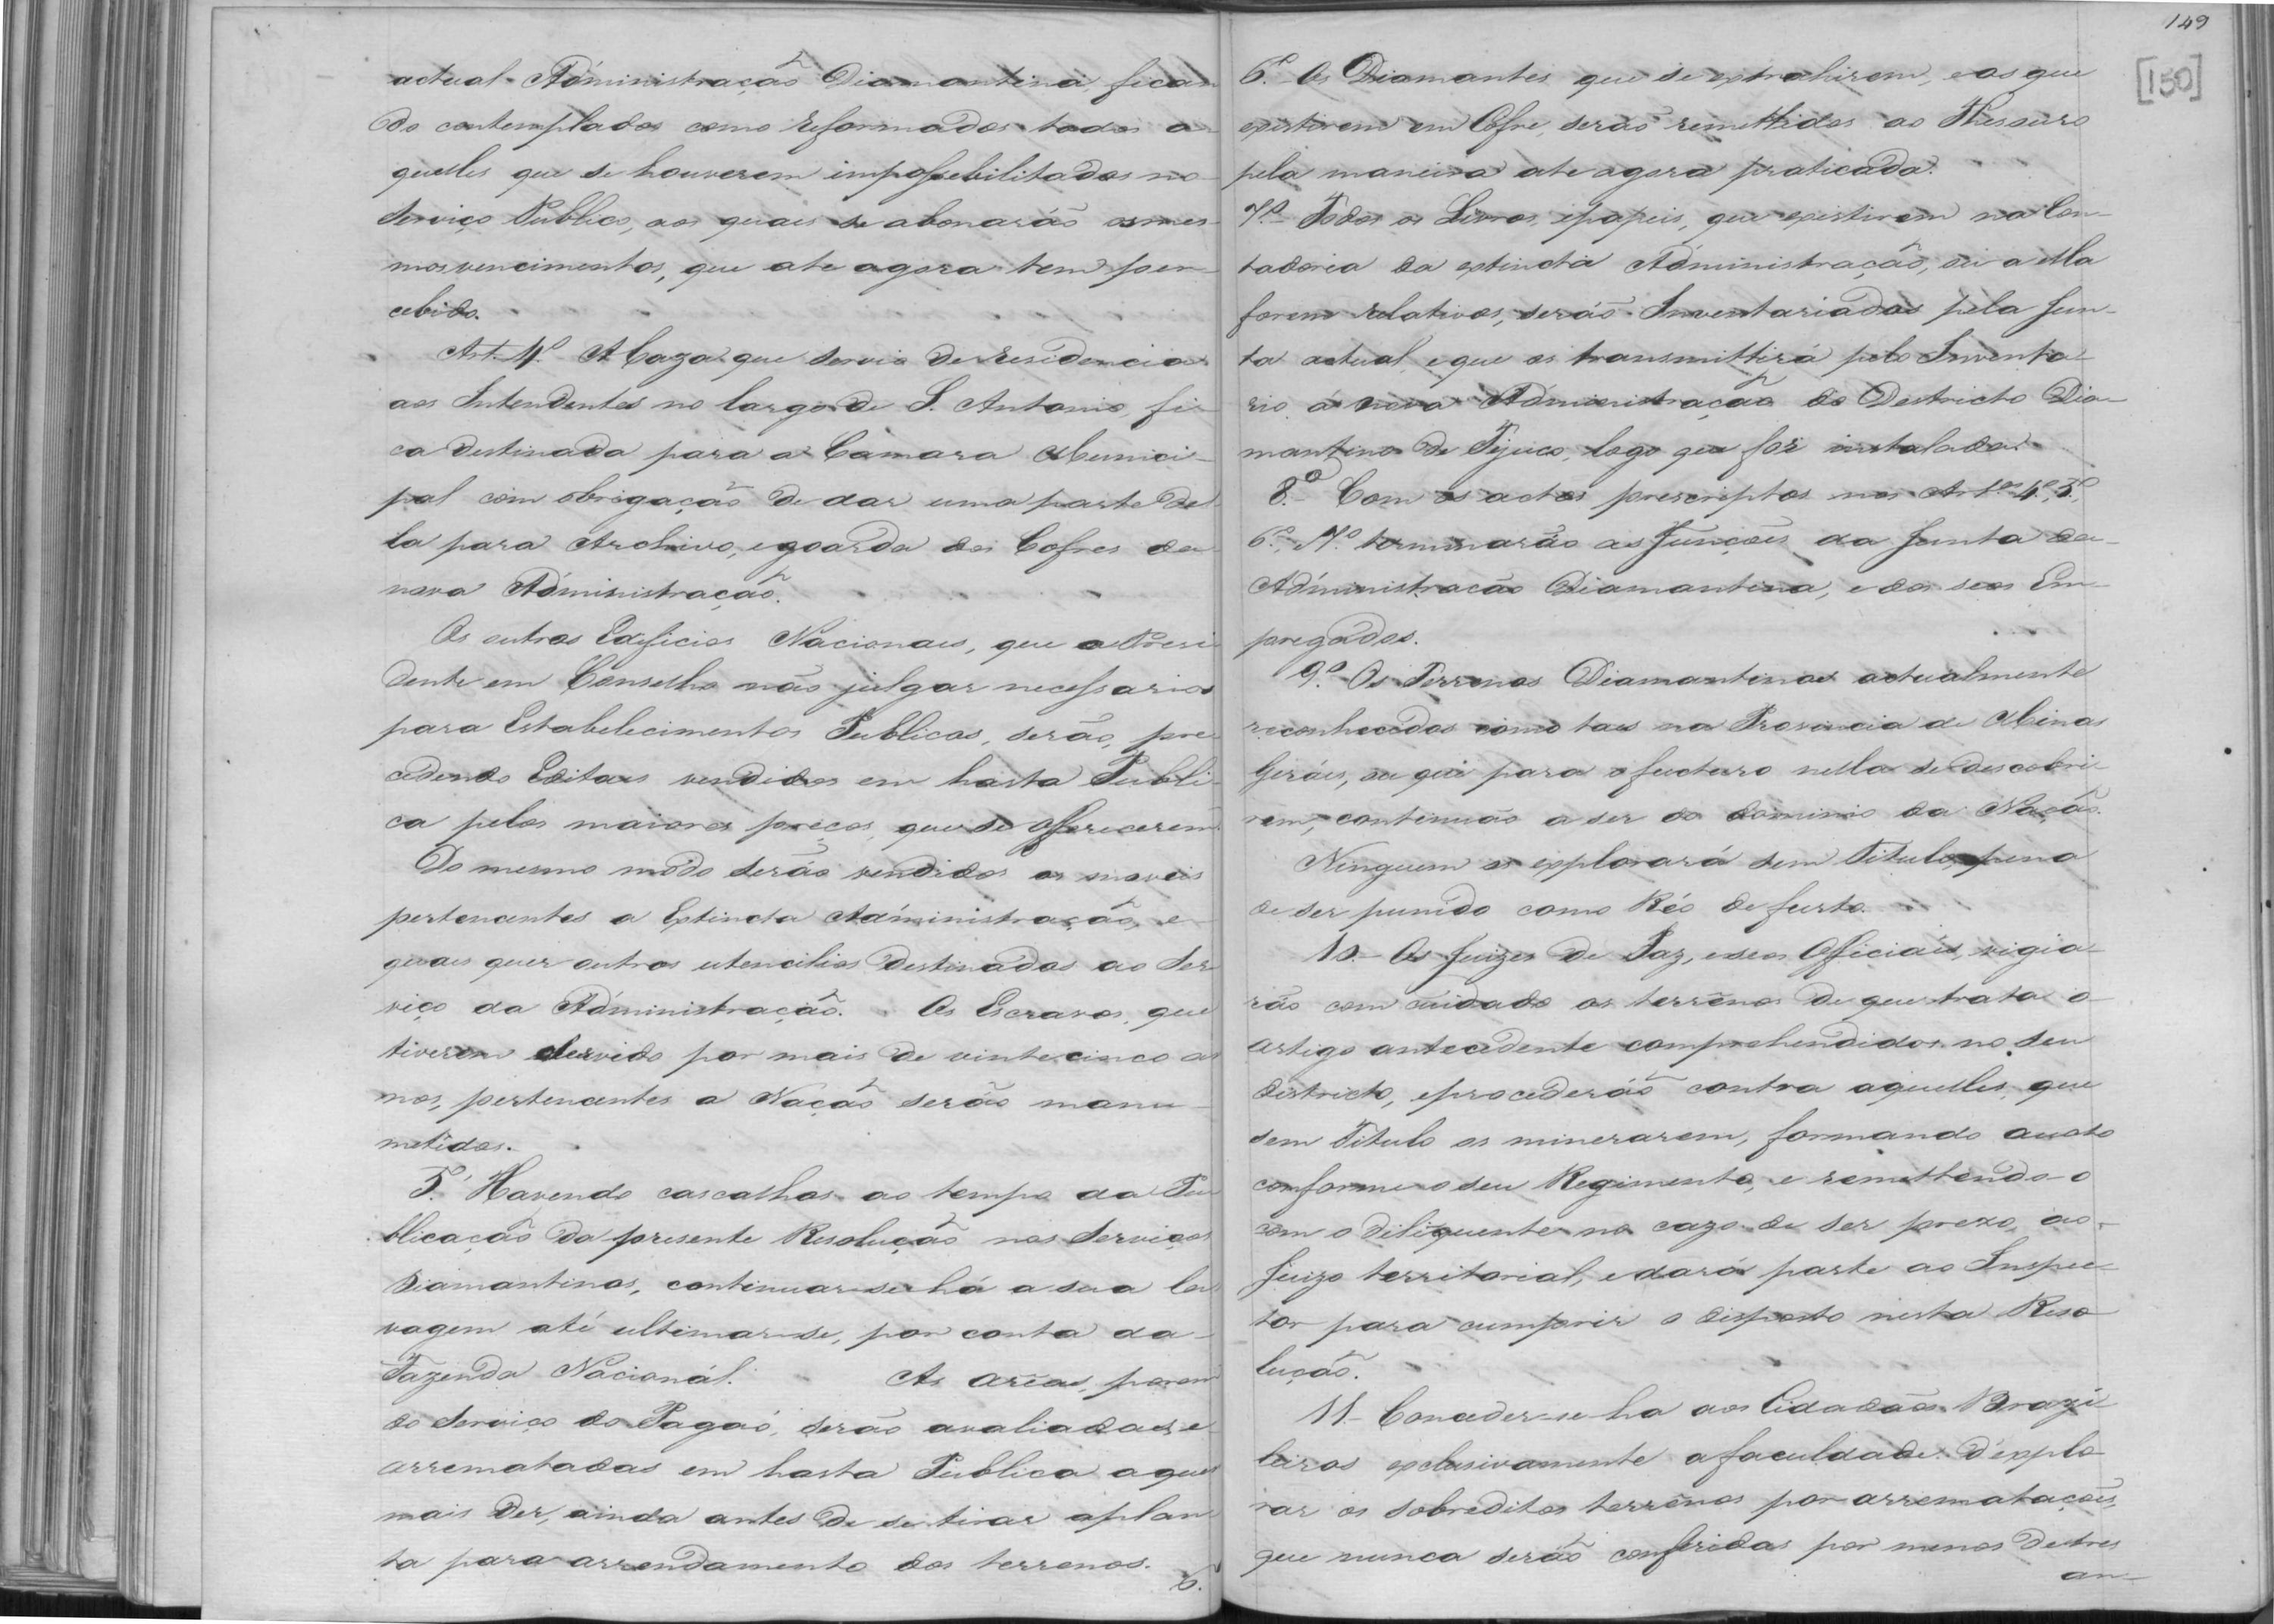 actual Administração Diamantina, fican
do contemplados como reformados todos a
quelles que se houverem impossebilitados no
Serviço Publico, aos quaes se abonarão os mes-
mos vencimentos, que ate agora tem per-
cebido.
Art. 4.º A Caza que servia de residencia
aos Intendentes no largo de S. Antonio, fi-
ca destinada para a Camara Munici-
pal com obrigação de dar uma parte del
la para Archivo, e goarda dos Cofres da
nova Administração.
Os outros Edificios Nacionaes, que o Presi
dente em Conselho não julgar necessarios
para Estabelecimentos Publicos, serão, pre
cedendo Editaes vendidos em hasta Publi-
ca pelos maiores preços, que se offerecerem
Do mesmo modo serão vendidos os moveis
pertencentes a Extincta Administração, e
quaes quer outros utencilios destinados ao Ser
viço da Administração. Os Escravos, que
tiverem servido por mais de vinte cinco an
nos, pertencentes a Nação serão manu-
metidos.
5.º Havendo cascalhos ao tempo da Pu
blicação da presente Resolução nos Serviços
Diamantinos, continuar-se-há a sua la
vagem até ultimar-se, por conta da
Fazenda Nacionál. As arêas, porem
do Serviço do Pagaó, serão avaliadas, e
arrematadas em hasta Publica a quem
mais der, ainda antes de se tirar a plan
ta para arrendamento dos terrenos.
6.
149
[150]
6.º Os Diamantes que se extrahirem, e os que
existirem em Cofre, serão remettidos ao Thesouro
pela maneira ate agora praticada.
7.º Todos os Livros, e papeis, que existirem na Con-
tadoria da extincta Administração, ou a ella
forem relativos, serão Inventariados pela Jun-
ta actual, e que os transmittirá pelo Inventa-
rio á nova Administração do Destricto Dia-
mantino de Tijuco, logo que for instalada.
8.º Com os actos prescriptos nos Art.os 4.º, 5.º,
6.º, 7.º terminarão as Funções da Junta da
Administração Diamantina, e dos seos Em-
pregados.
9.º Os Terrenos Diamantinos actualmente
reconhecidos como taes na Provincia de Minas
Geráes, ou que para o fucturo nella se descobri-
rem, continuão a ser do dominio da Nação.
Ninguem os explorará sem Titulo, pena
de ser punido como Réo de furto.
10. Os Juizes de Paz, e seos Officiáes, vigia-
rão com cuidado os terrenos de que trata o
artigo antecedente comprehendidos no seu
districto, e procederáõ contra aquelles, que
sem Titulo os minerarem, formando aucto
conforme o seu Regimento, e remettendo-o
com o diliquente no cazo de ser prezo, ao
Juizo territorial, e dará parte ao Inspec-
tor para cumprir o disposto nesta Reso-
lução.
11. Conceder-se-ha aos Cidadãos Brazi-
leiros exclusivamente a faculdade d'explo-
rar os sobreditos terrenos por arrematações,
que nunca serão conferidas por menos de tres
an-